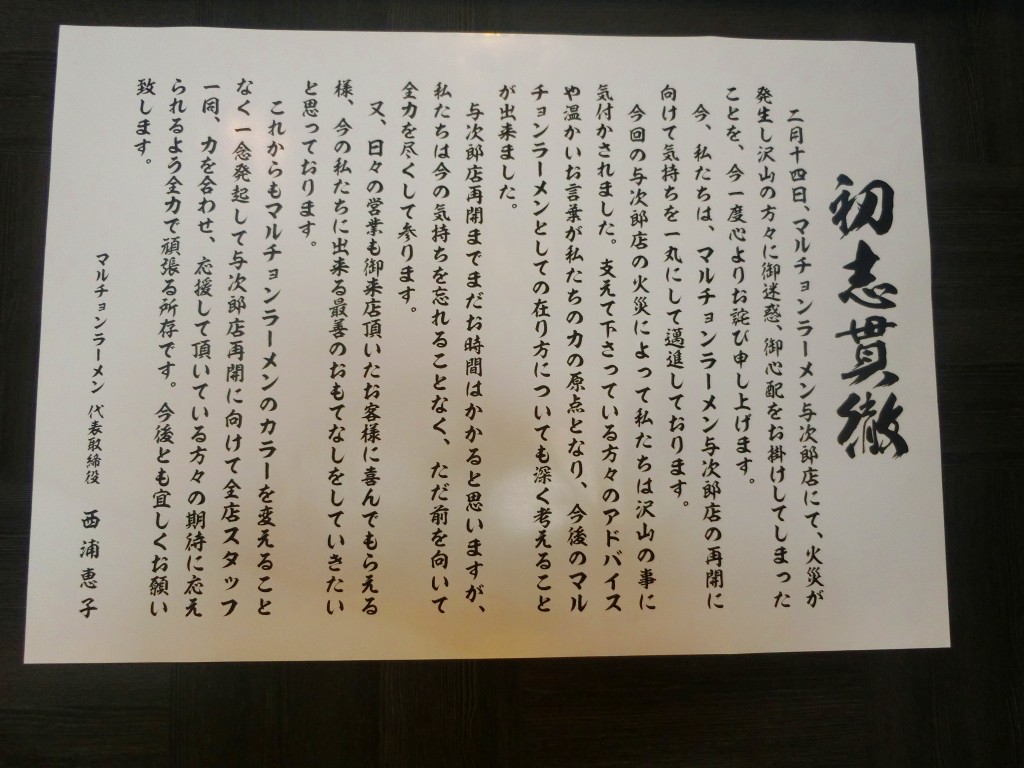 初志貫徹
二月十四日、マルチョンラーメン与次郎店にて、火災が
発生し沢山の方々に御迷惑、御心配をお掛けしてしまった
ことを、今一度心よりお詫び申し上げます。
今、私たちは、マルチョンラーメン与次郎店の再開に
向けて気持ちを一丸にして邁進しております。
今回の与次郎店の火災によって私たちは沢山の事に
気付かされました。支えて下さっている方々のアドバイス
や温かいお言葉が私たちの力の原点となり、今後のマル
チョンラーメンとしての在り方についても深く考えること
が出来ました。
与次郎店再開までまだお時間はかかると思いますが、
私たちは今の気持ちを忘れることなく、ただ前を向いて
全力を尽くして参ります。
又、日々の営業も御来店頂いたお客様に喜んでもらえる
様、今の私たちに出来る最善のおもてなしをしていきたい
と思っております。
これからもマルチョンラーメンのカラーを変えること
なく一念発起して与次郎店再開に向けて全店スタッフ
一同、力を合わせ、応援して頂いている方々の期待に応え
られるよう全力で頑張る所存です。今後とも宜しくお願い
致します。
マルチョンラーメン 代表取締役 西浦恵子